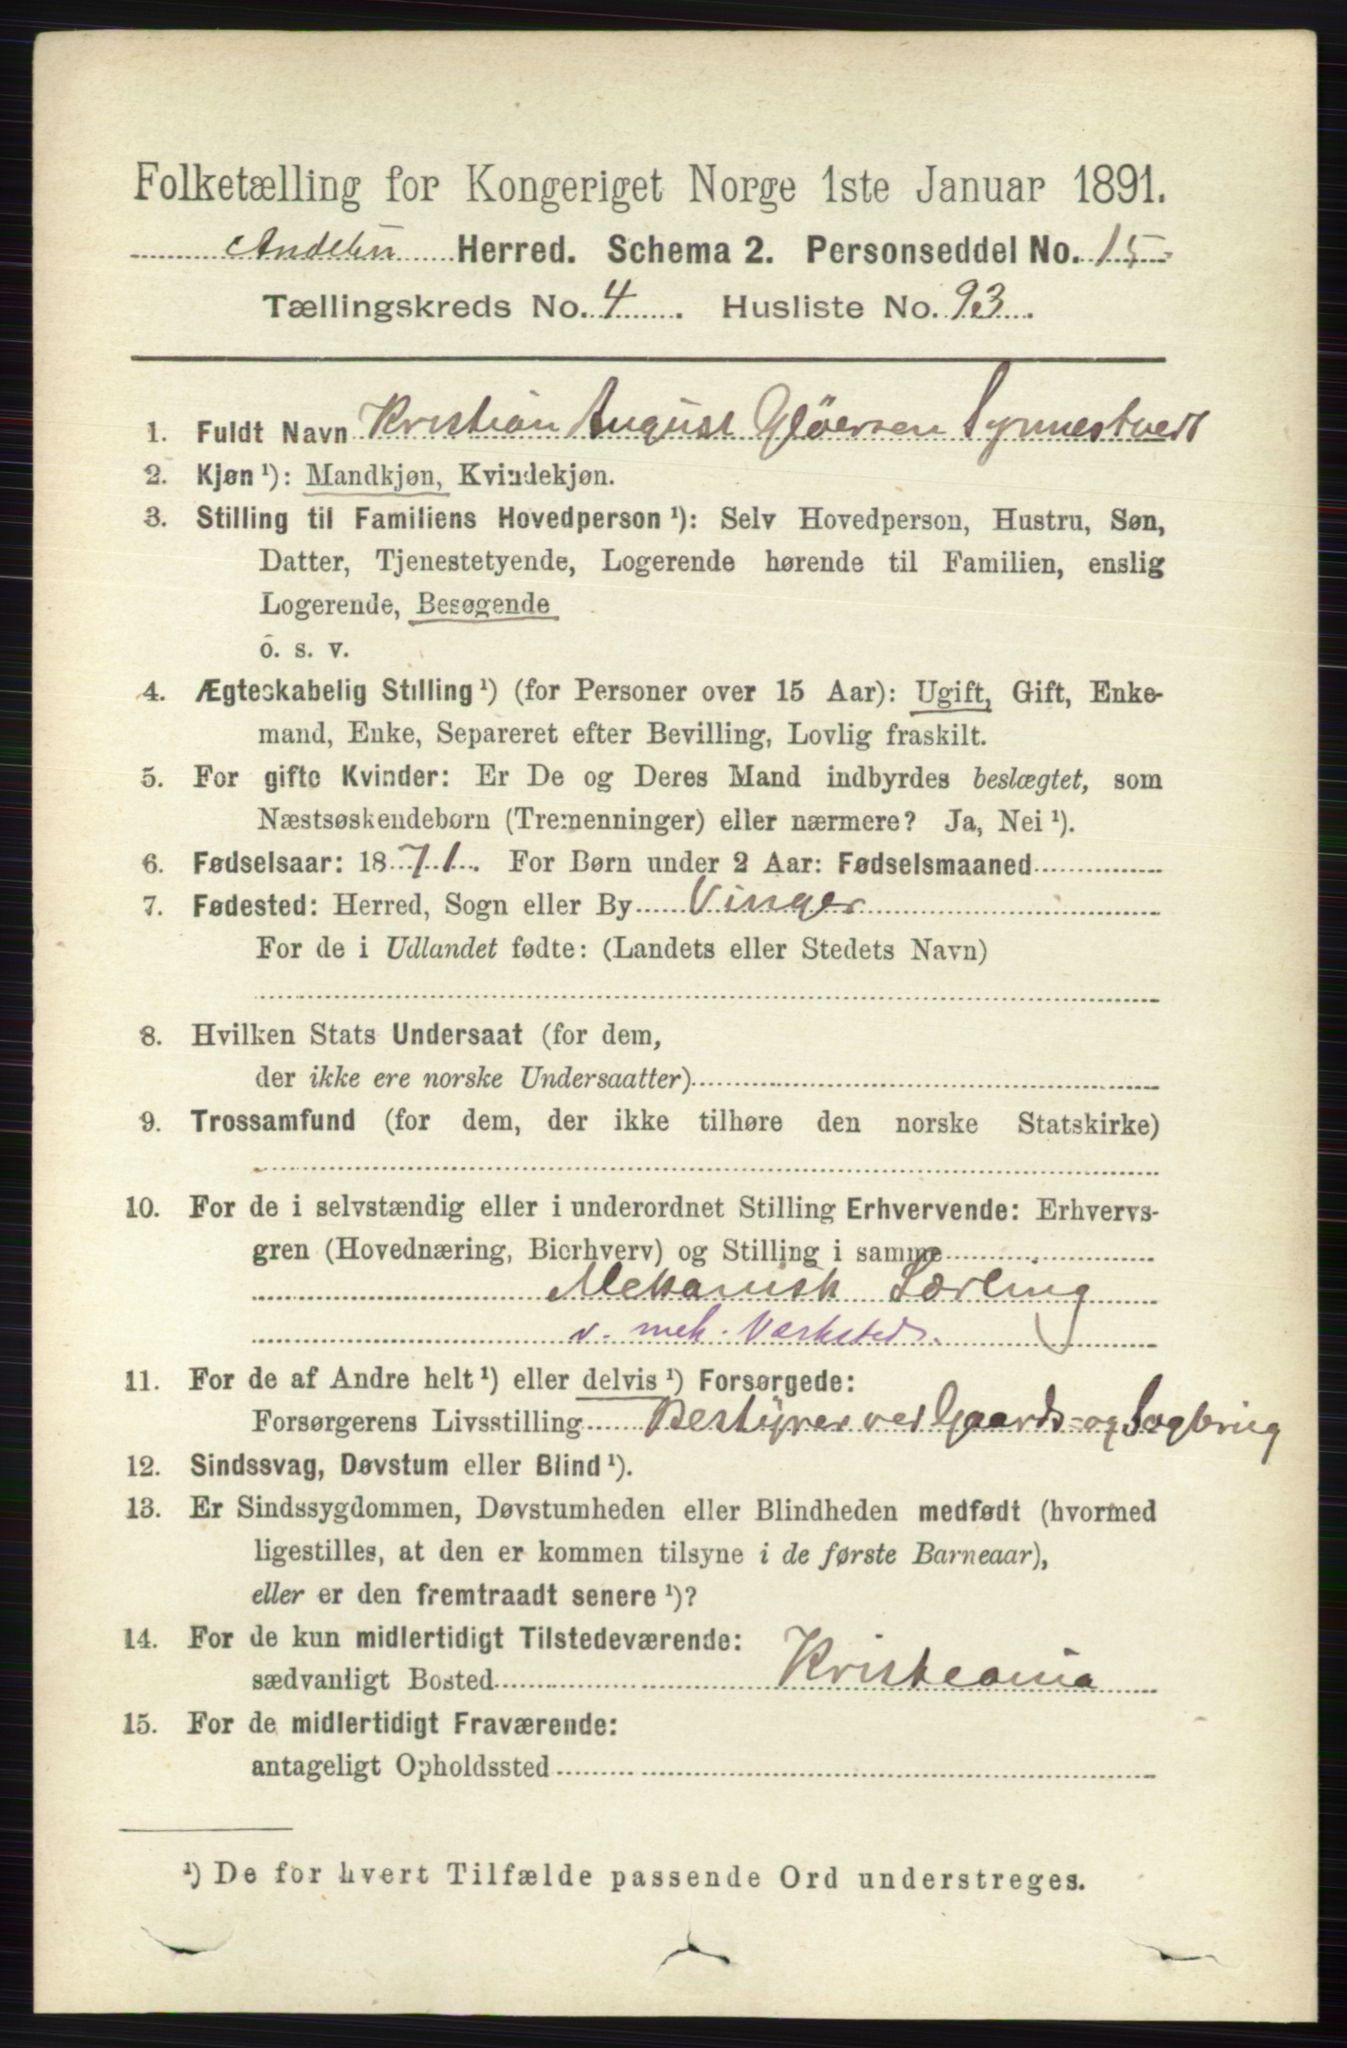 Folketælling for Kongeriget Norge 1ste Januar 1891.
Andebu Herred. Schema 2. Personseddel No. 15
Tællingskreds No. 4. Husliste No. 93.
1. Fuldt Navn Kristian August Gløersen Synnestvedt
2. Kjøn ¹): Mandkjøn, Kvindekjøn.
3. Stilling til Familiens Hovedperson ¹): Selv Hovedperson, Hustru, Søn,
Datter, Tjenestetyende, Logerende hørende til Familien, enslig
Logerende, Besøgende
o. s. v.
4. Ægteskabelig Stilling ¹) (for Personer over 15 Aar): Ugift, Gift, Enke-
mand, Enke, Separeret efter Bevilling, Lovlig fraskilt.
5. For gifte Kvinder: Er De og Deres Mand indbyrdes beslægtet, som
Næstsøskendebørn (Tremenninger) eller nærmere? Ja, Nei ¹).
6. Fødselsaar: 1871. For Børn under 2 Aar: Fødselsmaaned
7. Fødested: Herred, Sogn eller By Vinger
For de i Udlandet fødte: (Landets eller Stedets Navn)
8. Hvilken Stats Undersaat (for dem,
der ikke ere norske Undersaatter)
9. Trossamfund (for dem, der ikke tilhøre den norske Statskirke)
10. For de i selvstændig eller i underordnet Stilling Erhvervende: Erhvervs-
gren (Hovednæring, Bierhverv) og Stilling i samme
Mekanisk Lærling
v. mek. Værksted.
11. For de af Andre helt ¹) eller delvis ¹) Forsørgede:
Forsørgerens Livsstilling Bestyrer ved Gaards- og Sagbrug
12. Sindssvag, Døvstum eller Blind ¹).
13. Er Sindssygdommen, Døvstumheden eller Blindheden medfødt (hvormed
ligestilles, at den er kommen tilsyne i de første Barneaar),
eller er den fremtraadt senere ¹)?
14. For de kun midlertidigt Tilstedeværende:
sædvanligt Bosted Kristiania
15. For de midlertidigt Fraværende:
antageligt Opholdssted
¹) De for hvert Tilfælde passende Ord understreges.